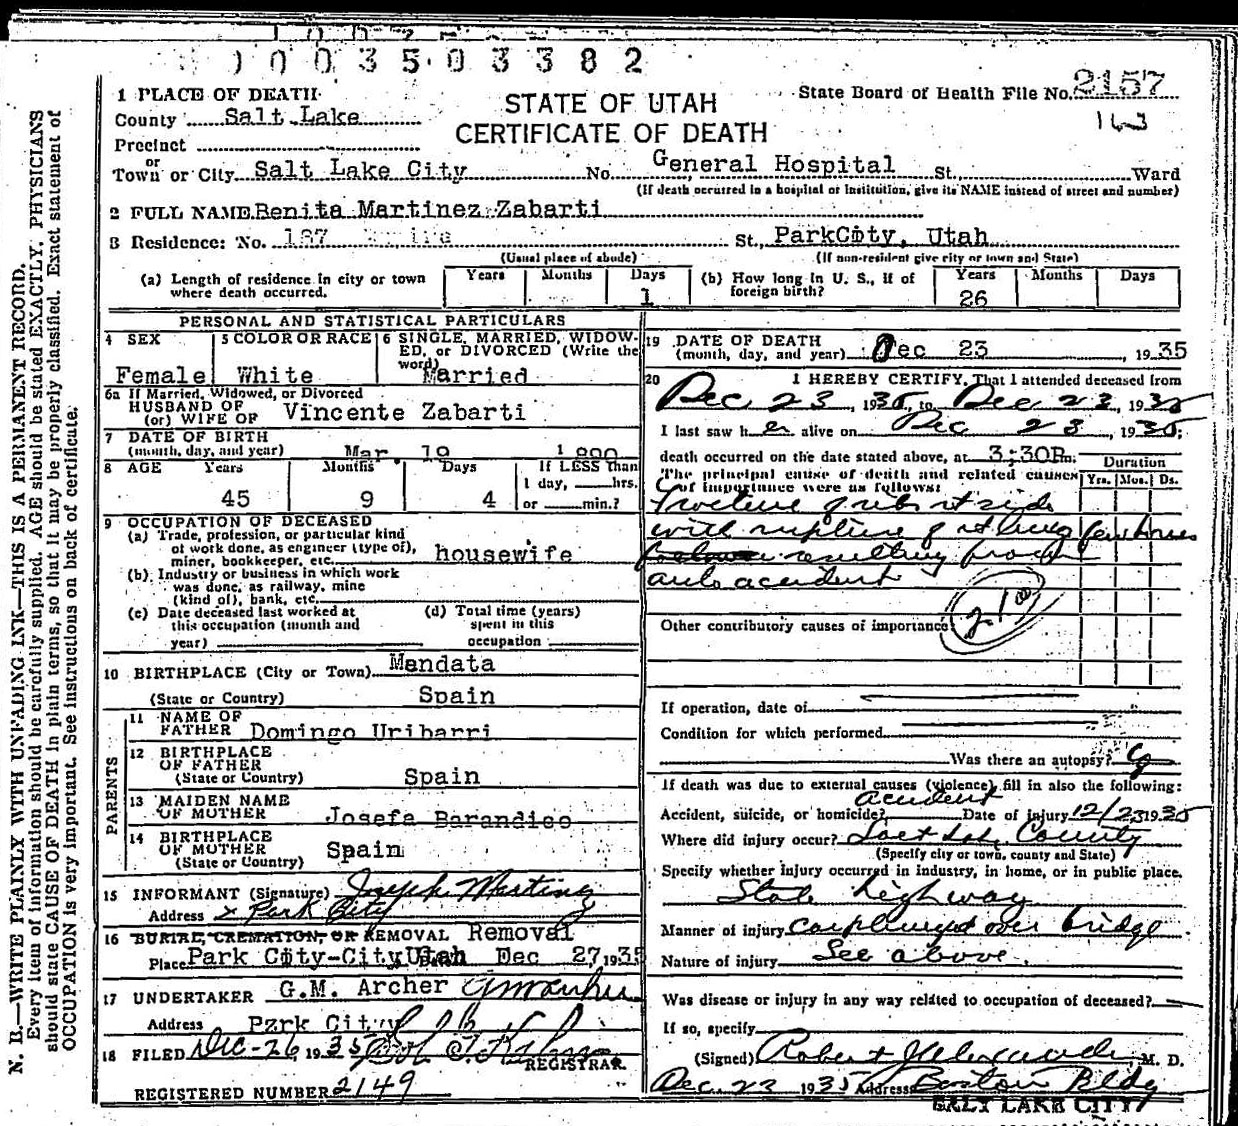 10035·03382
1 PLACE OF DEATH
STATE OF UTAH
CERTIFICATE OF DEATH
State Board of Health File No. 2157
163
County Salt Lake
Precinct
or
Town or City Salt Lake City No. General Hospital St. Ward
(If death occurred in a hospital or institution, give its NAME instead of street and number)
2 FULL NAME Benita Martinez Zabarti
3 Residence: No. 187 St., ParkCity, Utah
(Usual place of abode) (If non-resident give city or town and State)
(a) Length of residence in city or town where death occurred. Years Months Days 1
(b) How long in U. S., if of foreign birth? Years 26 Months Days
PERSONAL AND STATISTICAL PARTICULARS
4 SEX Female
5 COLOR OR RACE White
6 SINGLE, MARRIED, WIDOWED, or DIVORCED (Write the word) Married
6a If Married, Widowed, or Divorced
HUSBAND OF
(or) WIFE OF Vincente Zabarti
7 DATE OF BIRTH
(month, day, and year) Mar 19 1890
8 AGE Years Months Days If LESS than
1 day, hrs.
45 9 4 or min.?
9 OCCUPATION OF DECEASED
(a) Trade, profession, or particular kind
of work done, as engineer (type of),
miner, bookkeeper, etc. housewife
(b) Industry or business in which work
was done, as railway, mine
(kind of), bank, etc.
(c) Date deceased last worked at
this occupation (month and
year)
(d) Total time (years)
spent in this
occupation
10 BIRTHPLACE (City or Town) Mendata
(State or Country) Spain
PARENTS
11 NAME OF
FATHER Domingo Uribarri
12 BIRTHPLACE
OF FATHER
(State or Country) Spain
13 MAIDEN NAME
OF MOTHER Josefa Barandico
14 BIRTHPLACE
OF MOTHER Spain
(State or Country)
15 INFORMANT (Signature) Joseph Martinez
Address Park City
16 BURIAL, CREMATION, OR REMOVAL Removal
Place Park City-City Utah Dec 27, 1935
17 UNDERTAKER G.M. Archer
Address Park City
18 FILED Dec-26, 1935
REGISTRAR.
REGISTERED NUMBER 2149
19 DATE OF DEATH
(month, day, and year) Dec 23, 1935
20 I HEREBY CERTIFY, That I attended deceased from
Dec 23, 1935, to Dec 23, 1935
I last saw her alive on Dec 23, 1935;
death occurred on the date stated above, at 3:30P m.
The principal cause of death and related causes
of importance were as follows:
Duration
Yrs. Mos. Ds.
Fracture of ribs rt side
with rupture of rt lung few hours
resulting from
auto accident
Other contributory causes of importance:
210
If operation, date of
Condition for which performed
Was there an autopsy?
If death was due to external causes (violence) fill in also the following:
Accident, suicide, or homicide? accident Date of injury 12/23 1935
Where did injury occur? Salt Lake County
(Specify city or town, county and State)
Specify whether injury occurred in industry, in home, or in public place.
State highway
Manner of injury car plunged over bridge
Nature of injury See above.
Was disease or injury in any way related to occupation of deceased?
If so, specify
(Signed) Robert J Alexander, M. D.
Dec 23 1935 Address Boston Bldg
SALT LAKE CITY
N. B.—WRITE PLAINLY WITH UNFADING INK—THIS IS A PERMANENT RECORD.
Every item of information should be carefully supplied. AGE should be stated EXACTLY. PHYSICIANS
should state CAUSE OF DEATH in plain terms, so that it may be properly classified. Exact statement of
OCCUPATION is very important. See instructions on back of certificate.